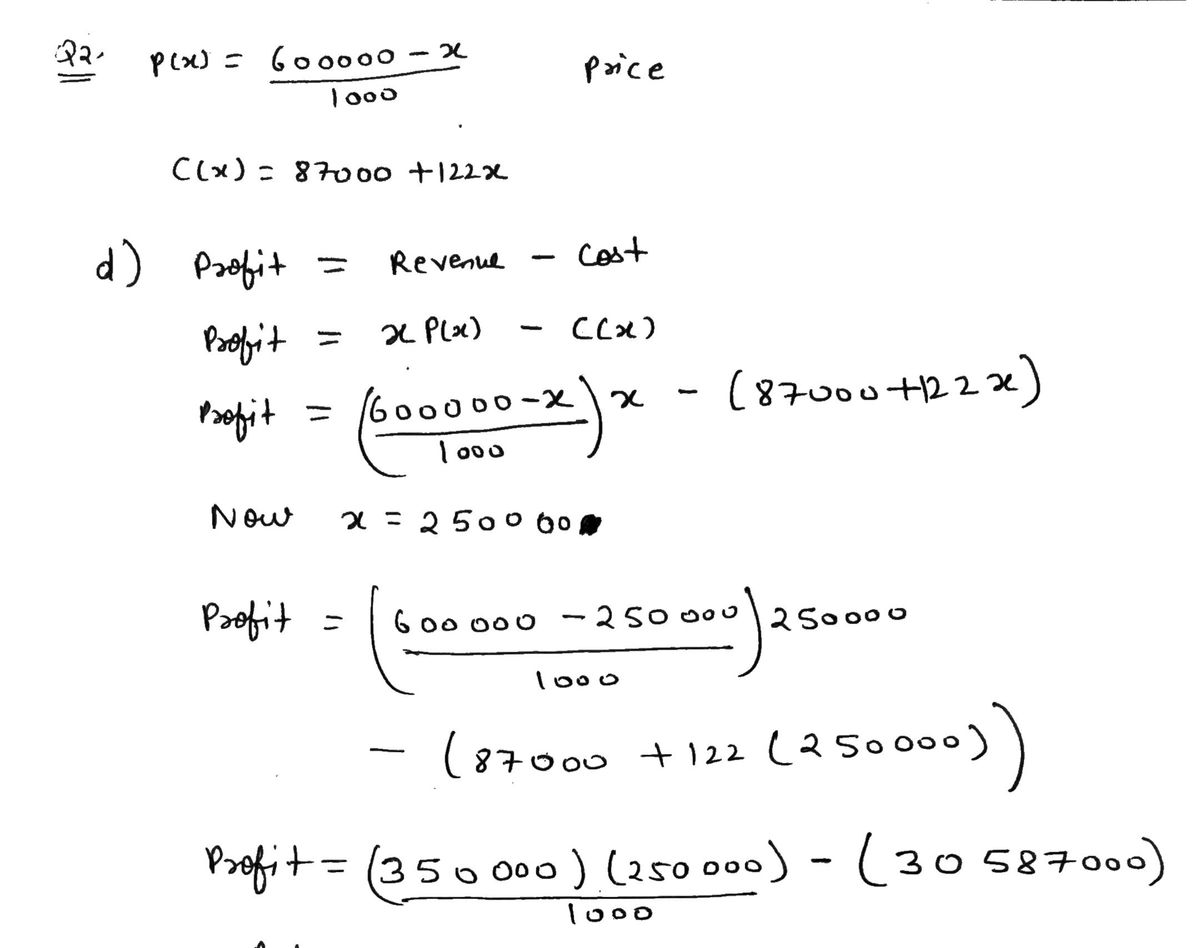 Q2. P(x) = (600000 - x)/1000 Price
C(x) = 87000 + 122x
d) Profit = Revenue - Cost
Profit = x P(x) - C(x)
Profit = ((600000 - x)/1000) x - (87000 + 122x)
Now x = 250000
Profit = ((600000 - 250000)/1000) 250000
- (87000 + 122 (250000))
Profit = (350000)(250000)/1000 - (30587000)